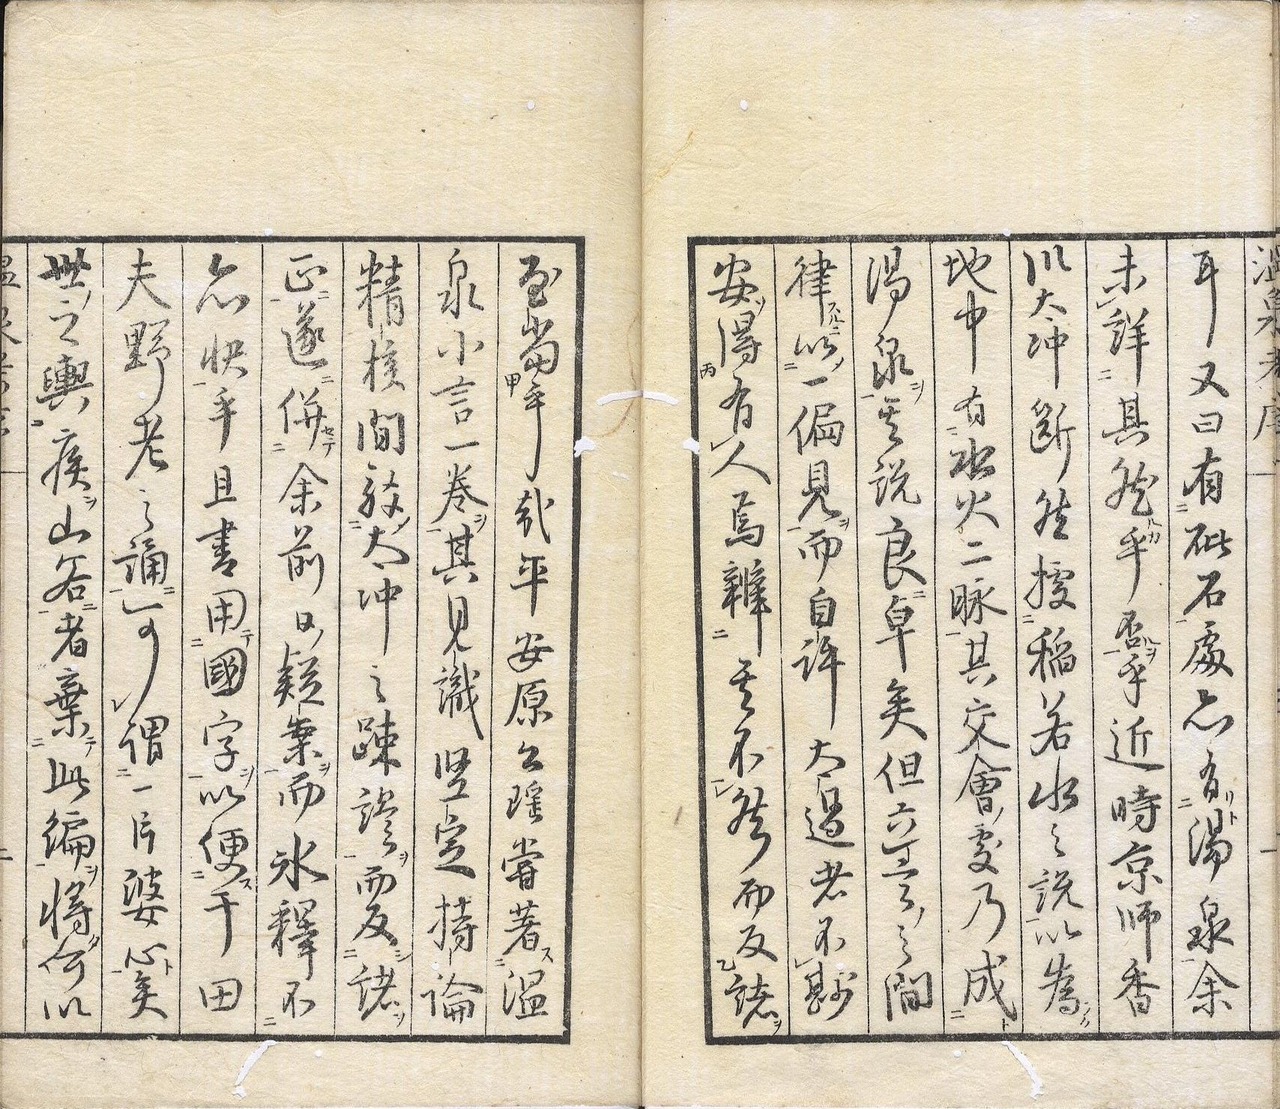 耳又曰有砒石處亦有湯泉余
未詳其然乎否乎近時京師香
川太冲斷然據稲若水之説以為
地中有水火二脉其交會處乃成
湯泉其説良卓矣但立言之間
律以一偏見而自許大過者不尠
安得有人焉辨其不然而反諸
至當乎哉平安原公瑶嘗著温
泉小言一巻其見識竪定持論
精核間救太冲之踈謬而反諸
正遂併余前日疑案而氷釋不
亦快乎且書用國字以便于田
夫野老之誦可謂一片婆心矣
世之輿疾山谷者棄此編將何以